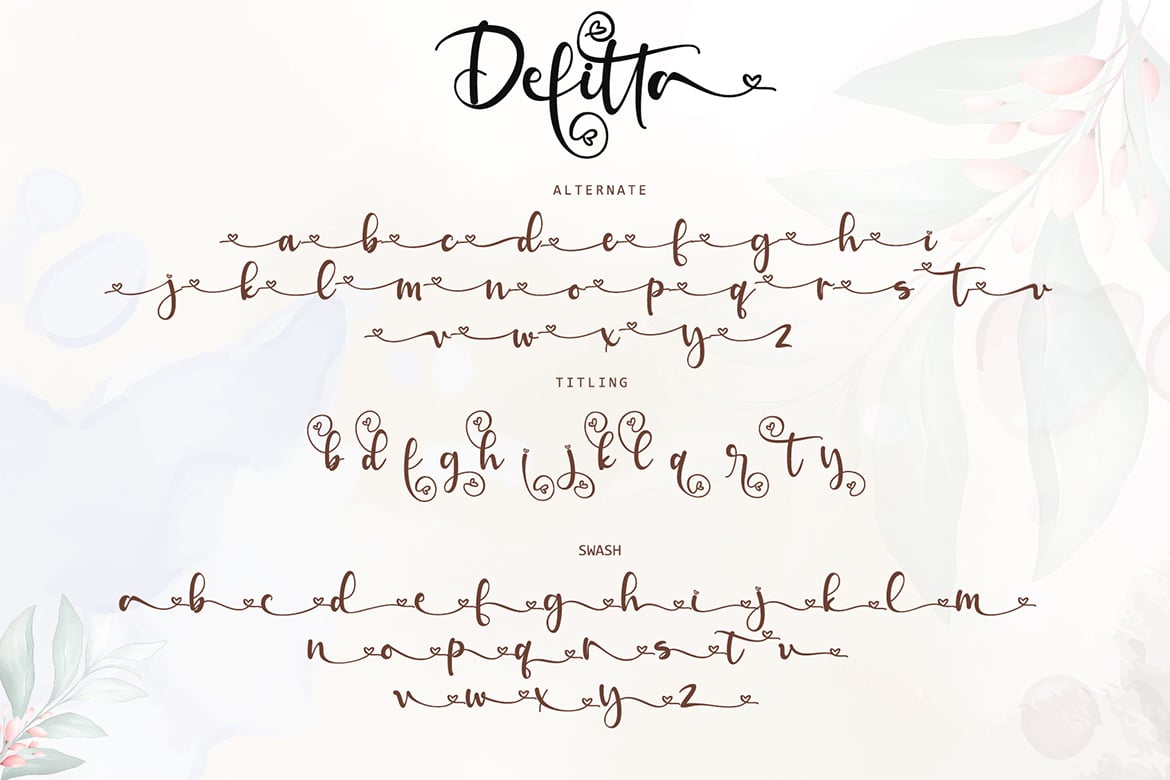 Defitta
ALTERNATE
a b c d e f g h i
j k l m n o p q r s t v
v w x y z
TITLING
b d f g h i j k l q r t y
SWASH
a b c d e f g h i j k l m
n o p q r s t u
v w x y z